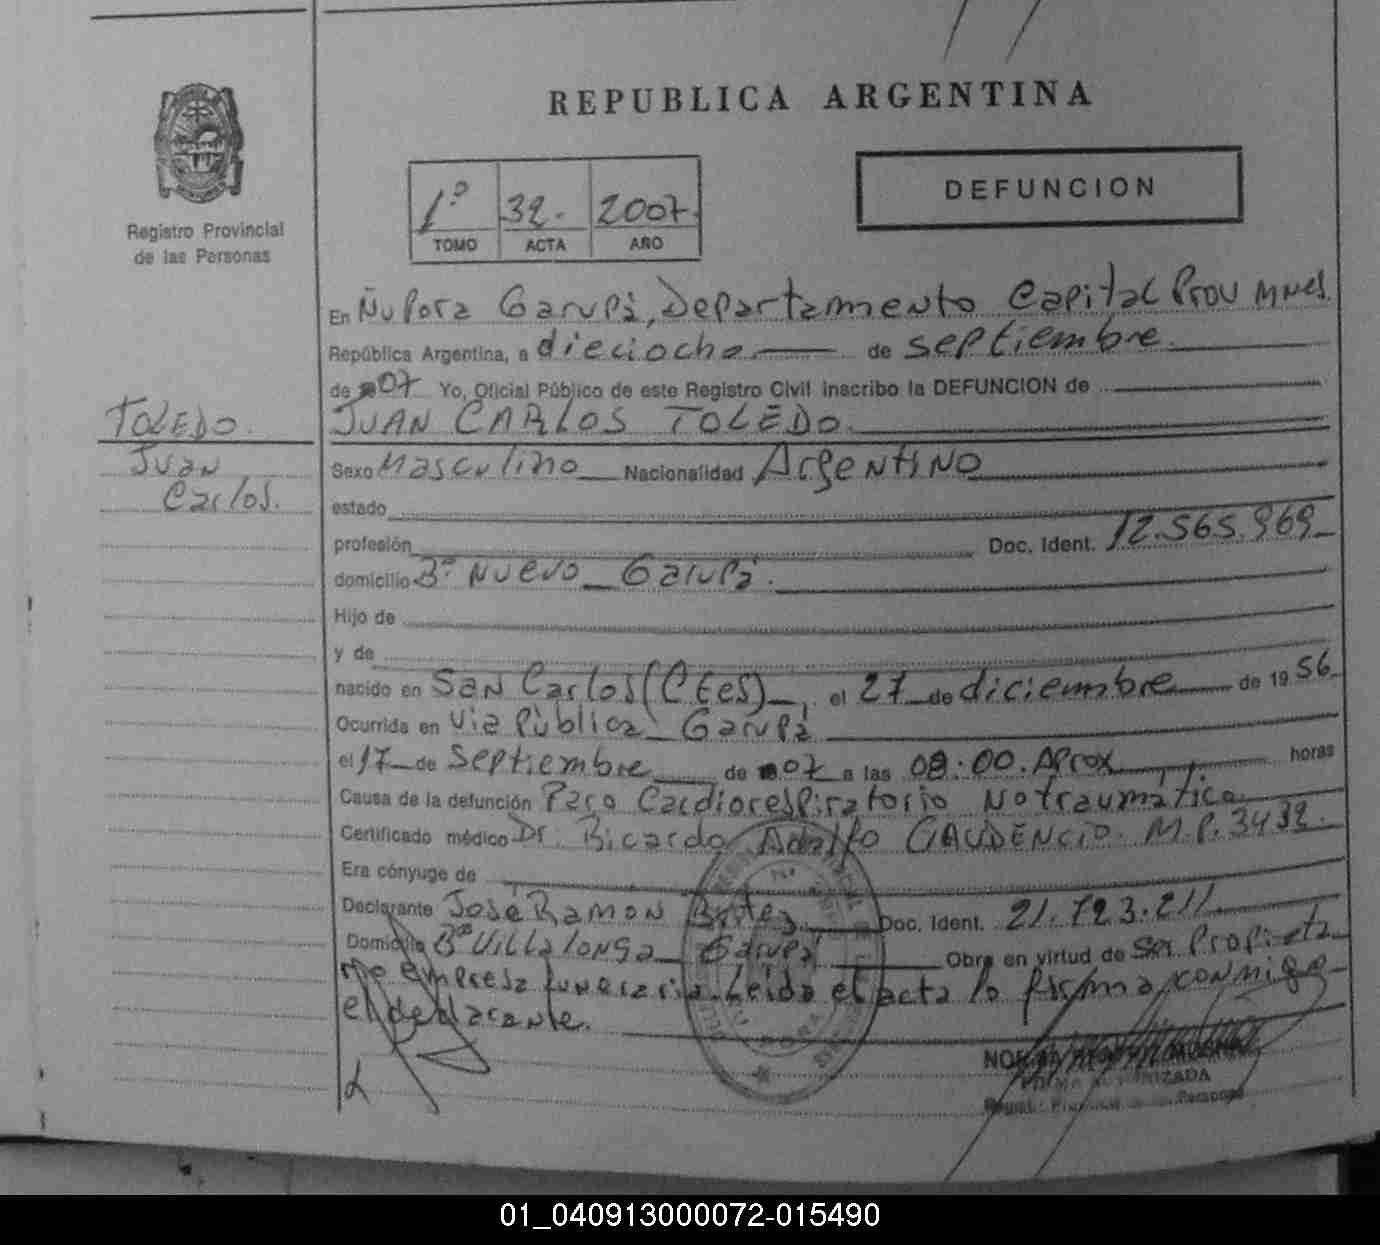 REPUBLICA ARGENTINA
Registro Provincial
de las Personas
1º 32. 2007.
TOMO ACTA AÑO
DEFUNCION
En Ñu Pora Garupá, Departamento Capital Prov Mnes.
República Argentina, a dieciocho de septiembre
de 07 Yo, Oficial Público de este Registro Civil inscribo la DEFUNCION de
TOLEDO.
Juan
Carlos.
JUAN CARLOS TOLEDO.
Sexo Masculino Nacionalidad Argentino
estado
profesión Doc. Ident. 12.565.969
domicilio Bº Nuevo Garupá.
Hijo de
y de
nacido en San Carlos (Ctes), el 27 de diciembre de 1956
Ocurrida en Via Pública Garupá
el 17 de Septiembre de 07 a las 08:00. Aprox horas
Causa de la defunción Paro Cardiorespiratorio No traumática
Certificado médico Dr. Ricardo Adolfo GAUDENCIO. M.P. 3432.
Era cónyuge de
Declarante José Ramon Doc. Ident. 21.723.211
Domicilio Bº Villalonga Garupá Obra en virtud de ser Propieta
empresa funeraria. Leida el acta lo firma conmigo
el declarante.
FIRMA AUTORIZADA
01_040913000072-015490